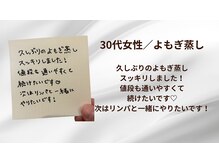 久しぶりのよもぎ蒸し
スッキリしました!
値段も通いやすくて
続けたいです♡
次はリンパと一緒に
やりたいです!
30代女性／よもぎ蒸し
久しぶりのよもぎ蒸し
スッキリしました！
値段も通いやすくて
続けたいです♡
次はリンパと一緒にやりたいです！